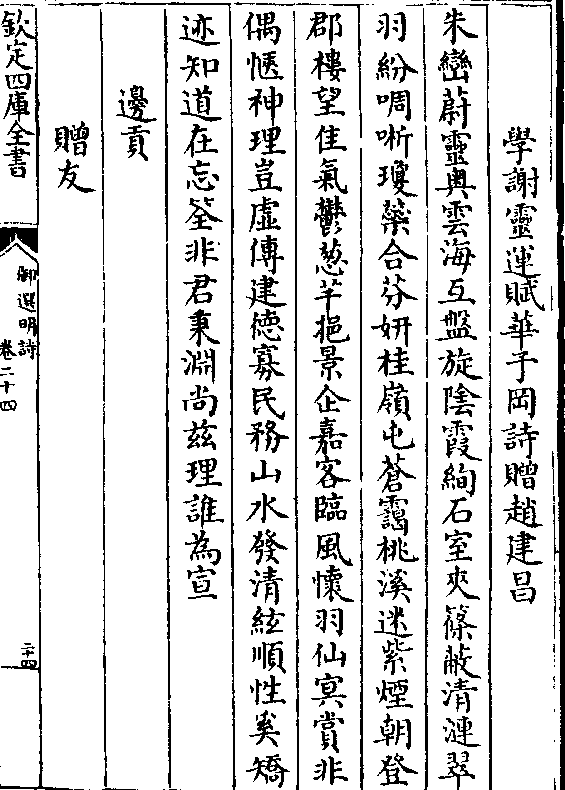 學謝靈運賦華子岡詩贈趙建昌
朱巒蔚靈輿雲海互盤旋陰霞絢石室夾篠蔽清漣翠
羽紛啁哳瓊蘂合芬妍桂嶺屯蒼靄桃溪迷紫煙朝登
郡樓望佳氣鬱葱芊挹景企嘉客臨風懷羽仙冥賞非
偶愜神理豈虛傳建德寡民務山水發清絃順性奚矯
迹知道在忘筌非君秉淵尚兹理誰為宣
邊貢
贈友
欽定四庫全書
御選明詩
卷二十四
二十四